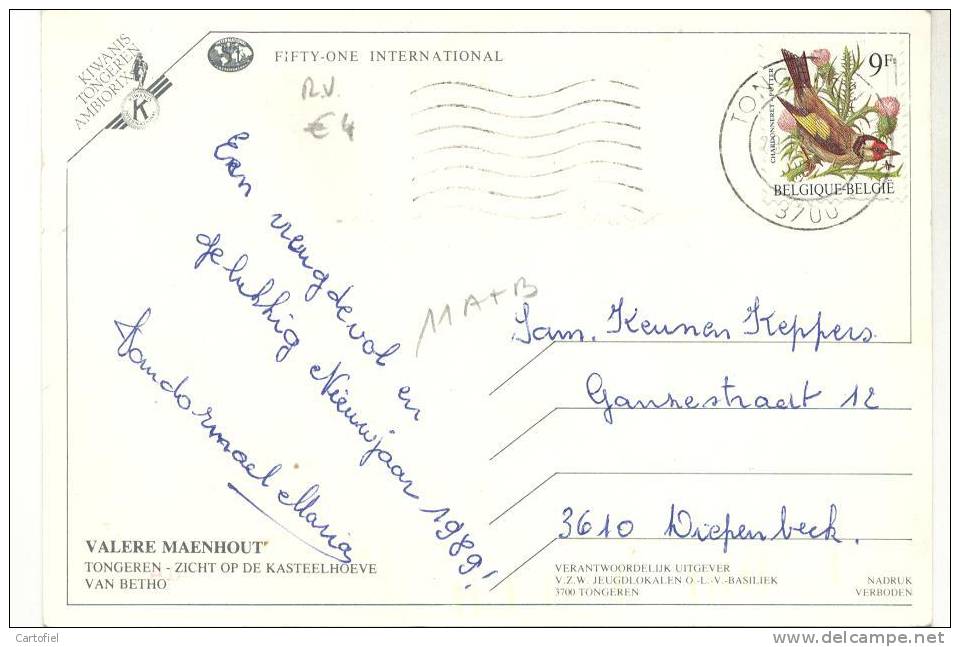 KIWANIS
TONGEREN
AMBIORIX
KIWANIS
K
FIFTY-ONE INTERNATIONAL
R.V.
€ 4
9F
CHARDONNERET-PUTTER
BELGIQUE-BELGIË
TON
3700
Een vreugdevol en
gelukkig Nieuwjaar 1989!
Vandormael Maria
11 A+B
Fam. Keunen Keppers
Ganzestraat 12
3610 Diepenbeek.
VALERE MAENHOUT
TONGEREN - ZICHT OP DE KASTEELHOEVE
VAN BETHO
VERANTWOORDELIJK UITGEVER
V.Z.W. JEUGDLOKALEN O.-L.-V.-BASILIEK
3700 TONGEREN
NADRUK
VERBODEN
Cartofiel
www.delcampe.net